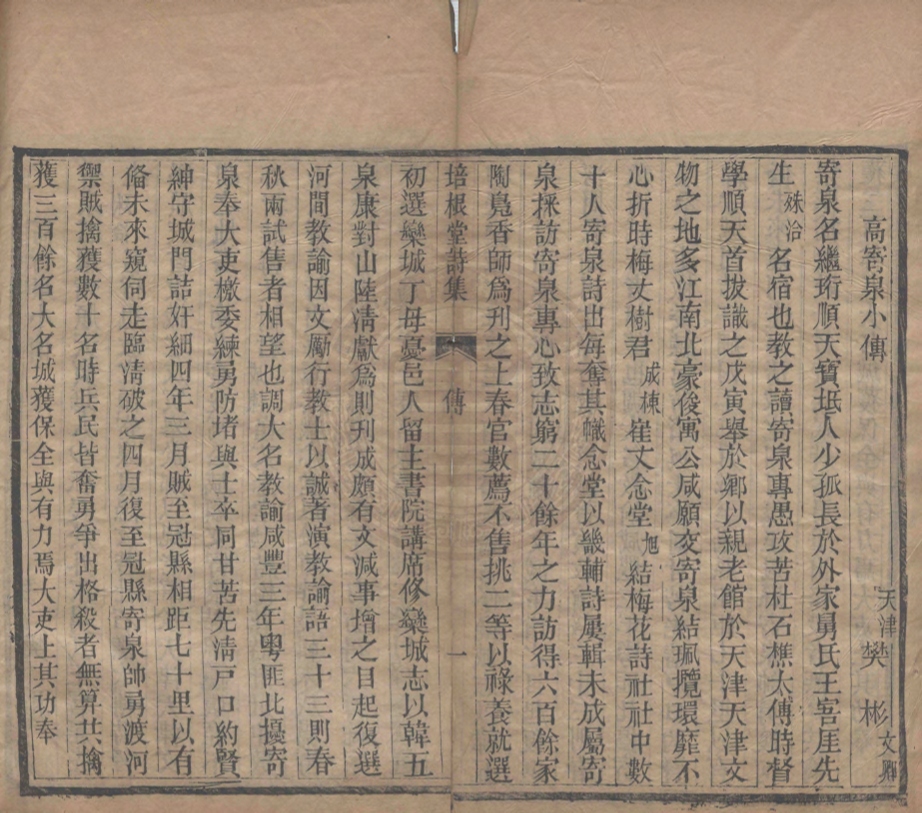 高寄泉小傳
天津樊彬文卿
寄泉名繼珩順天寶坻人少孤長於外家舅氏王客厓先
生殊洽名宿也教之讀寄泉專愚攻苦杜石樵太傅時督
學順天首拔識之戊寅舉於鄉以親老館於天津天津文
物之地多江南北豪俊寓公咸願交寄泉結珮攬環靡不
心折時梅丈樹君成棟崔丈念堂旭結梅花詩社社中數
十人寄泉詩出每奪其幟念堂以畿輔詩屢輯未成屬寄
泉採訪寄泉專心致志窮二十餘年之力訪得六百餘家
陶鳧香師為刊之上春官數薦不售挑二等以祿養就選
培根堂詩集
傳
一
初選欒城丁母憂邑人留主書院講席修欒城志以韓五
泉康對山陸清獻為則刊成頗有文減事增之目起復選
河間教諭因文勵行教士以誠著演教諭語三十三則春
秋兩試售者相望也調大名教諭咸豐三年粵匪北擾寄
泉奉大吏檄委練勇防堵與士卒同甘苦先清戸口約賢
紳守城門詰奸細四年三月賊至冠縣相距七十里以有
俻未來窺伺走臨清破之四月復至冠縣寄泉帥勇渡河
禦賊擒獲數十名時兵民皆奮勇爭出格殺者無算共擒
獲三百餘名大名城獲保全與有力焉大吏上其功奉